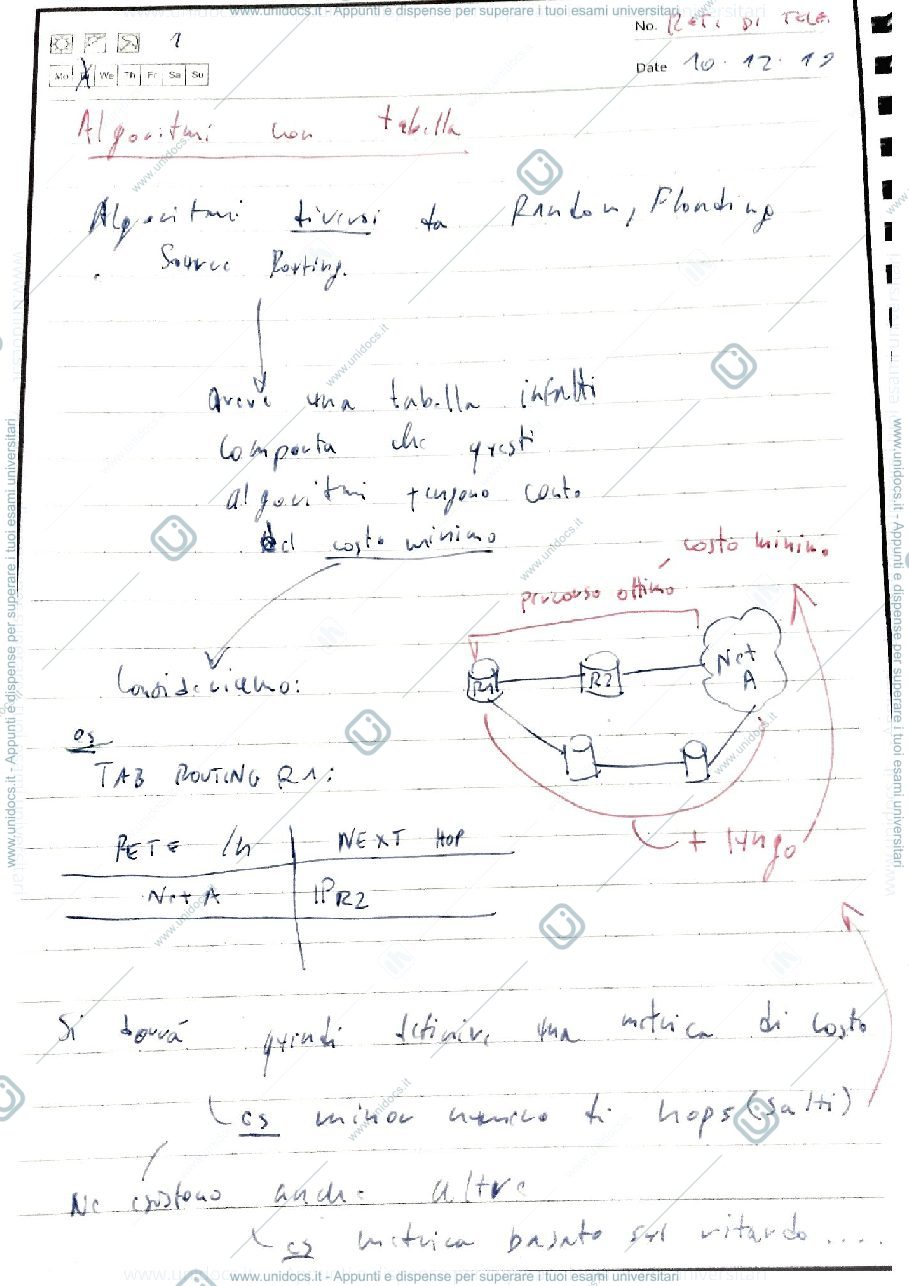 www.unidocs.it - Appunti e dispense per superare i tuoi esami universitari
No. RETI DI TELE.
1
Mo We Th Fr Sa Su
Date 10.12.19
Algoritmi con tabella
Algoritmi diversi da Random, Flooding
Source Routing.
avere una tabella infatti
comporta che questi
algoritmi tengono conto
del costo minimo
costo minimo
percorso ottimo
Consideriamo:
R1 R2 Net A
es
TAB ROUTING R1:
+ lungo
RETE /n NEXT HOP
Net A IP R2
Si dovrà quindi definire una metrica di costo
es minor numero di hops (salti)
Ne esistono anche altre
es metrica basato sul ritardo ....
www.unidocs.it - Appunti e dispense per superare i tuoi esami universitari